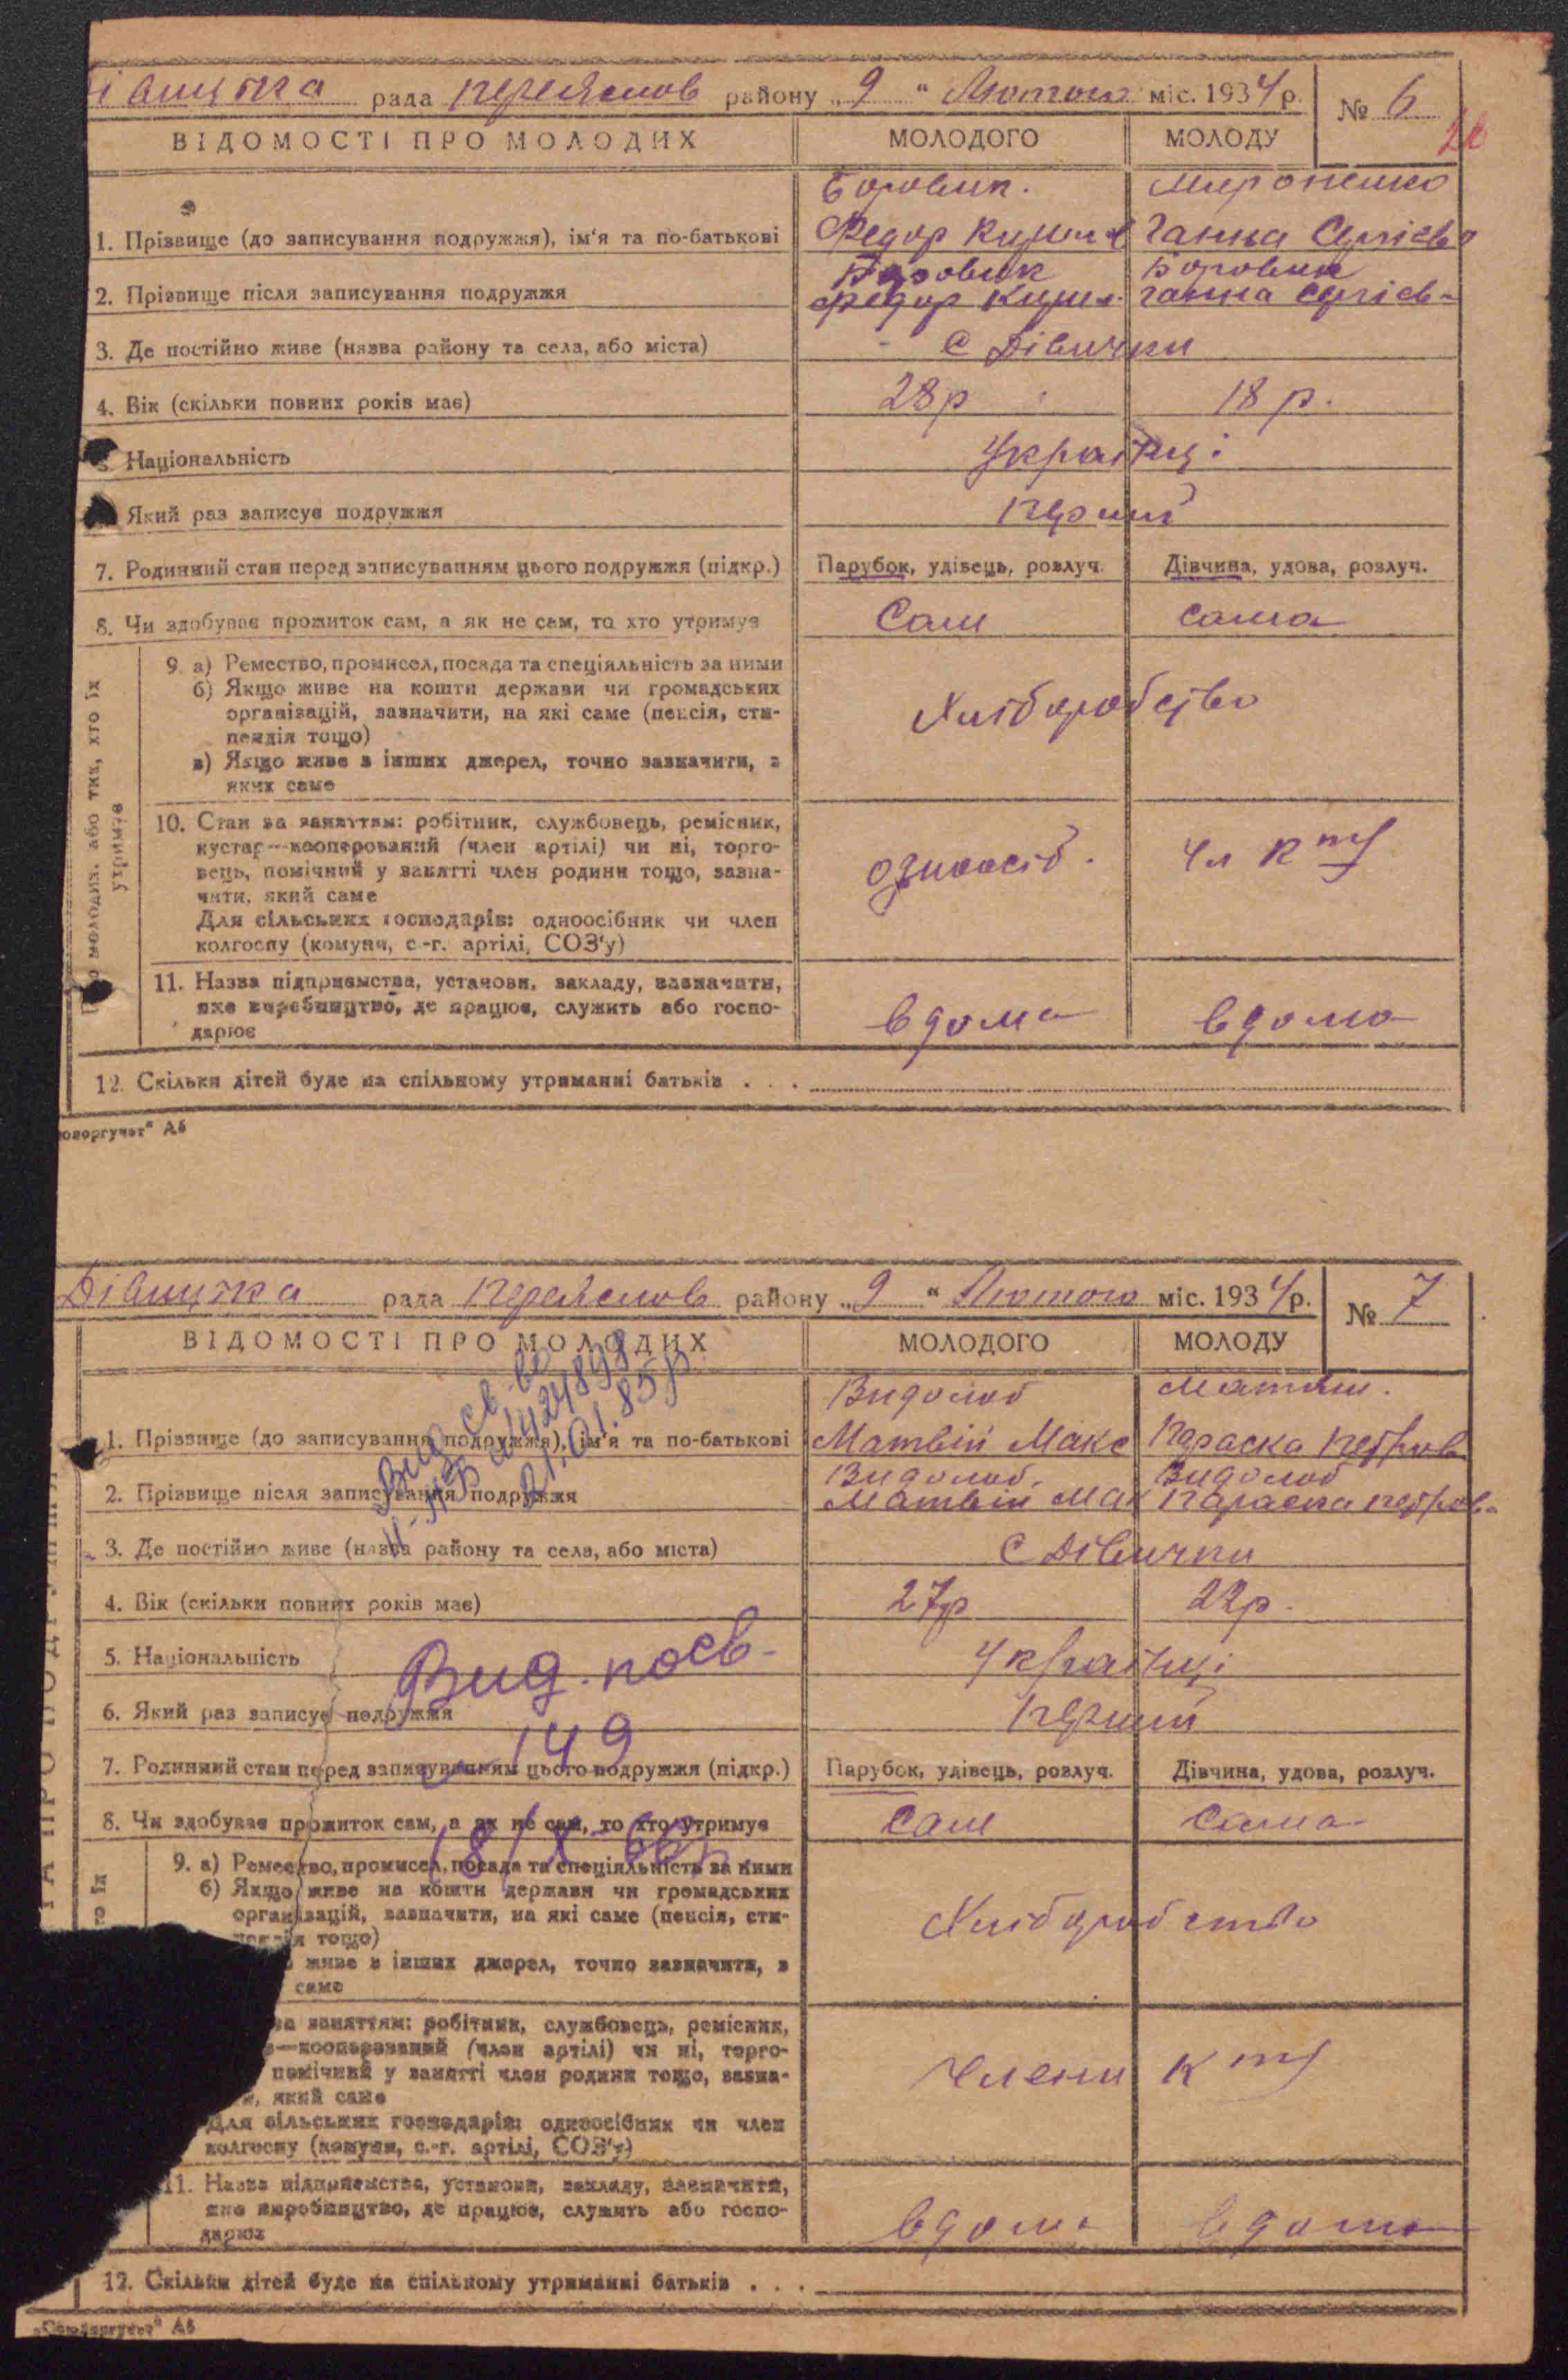 рада Переяслов району „9“ Лютого міс. 1934 р. № 6
ВІДОМОСТІ ПРО МОЛОДИХ МОЛОДОГО МОЛОДУ
Боровик. Мироненко
1. Прізвище (до записування подружжя), ім'я та по-батькові Федор Кирил Ганна Сергієв
Боровик Боровик
2. Прізвище після записування подружжя Федор Кирил. Ганна Сергієв-
3. Де постійно живе (назва району та села, або міста) С Дівички
4. Вік (скільки повних років має) 28р 18 р.
Національність Українці
Який раз записує подружжя Перший
7. Родинний стан перед записуванням цього подружжя (підкр.) Парубок, удівець, розлуч. Дівчина, удова, розлуч.
8. Чи здобуває прожиток сам, а як не сам, то хто утримує Сам сама
9. а) Ремество, промисел, посада та спеціяльність за ними
б) Якщо живе на кошти держави чи громадських
організацій, зазначити, на які саме (пенсія, сти-
пендія тощо)
Хліборобство
в) Якщо живе з інших джерел, точно зазначити, з
яких саме
молодих, або тих, хто їх
утримує
10. Стан за заняттям: робітник, службовець, ремісник,
кустар—кооперований (член артілі) чи ні, торго-
вець, помічний у занятті член родини тощо, зазна-
чити, який саме
одноосіб. Чл К
Для сільських господарів: одноосібник чи член
колгоспу (комуни, с.-г. артілі, СОЗ'у)
11. Назва підприємства, установи, закладу, зазначити,
яке виробництво, де працює, служить або госпо-
дарює
вдома вдома
12. Скільки дітей буде на спільному утриманні батьків . . .
А5
рада Переяслов району „9“ Лютого міс. 1934 р. № 7
ВІДОМОСТІ ПРО МОЛОДИХ МОЛОДОГО МОЛОДУ
Видолоб
1. Прізвище (до записування подружжя), ім'я та по-батькові Матвій Макс Параска Петров
Видолоб Видолоб
2. Прізвище після записування подружжя Матвій Мак Параска Петров-
3. Де постійно живе (назва району та села, або міста) С Дівички
4. Вік (скільки повних років має) 27р 22р.
5. Національність Українці
Вид. посв-
6. Який раз записує подружжя Перший
149
7. Родинний стан перед записуванням цього подружжя (підкр.) Парубок, удівець, розлуч. Дівчина, удова, розлуч.
8. Чи здобуває прожиток сам, а як не сам, то хто утримує Сам Сама
18/X-66р.
9. а) Ремество, промисел, посада та спеціяльність за ними
б) Якщо живе на кошти держави чи громадських
організацій, зазначити, на які саме (пенсія, сти-
тощо)
Хліборобство
живе з інших джерел, точно зазначити, з
саме
за заняттям: робітник, службовець, ремісник,
кооперований (член артілі) чи ні, торго-
помічний у занятті член родини тощо, зазна-
який саме
Члени К
Для сільських господарів: одноосібник чи член
колгоспу (комуни, с.-г. артілі, СОЗ'у)
11. Назва підприємства, установи, закладу, зазначити,
яке виробництво, де працює, служить або госпо-
дарює
вдома вдома
12. Скільки дітей буде на спільному утриманні батьків . . .
А5